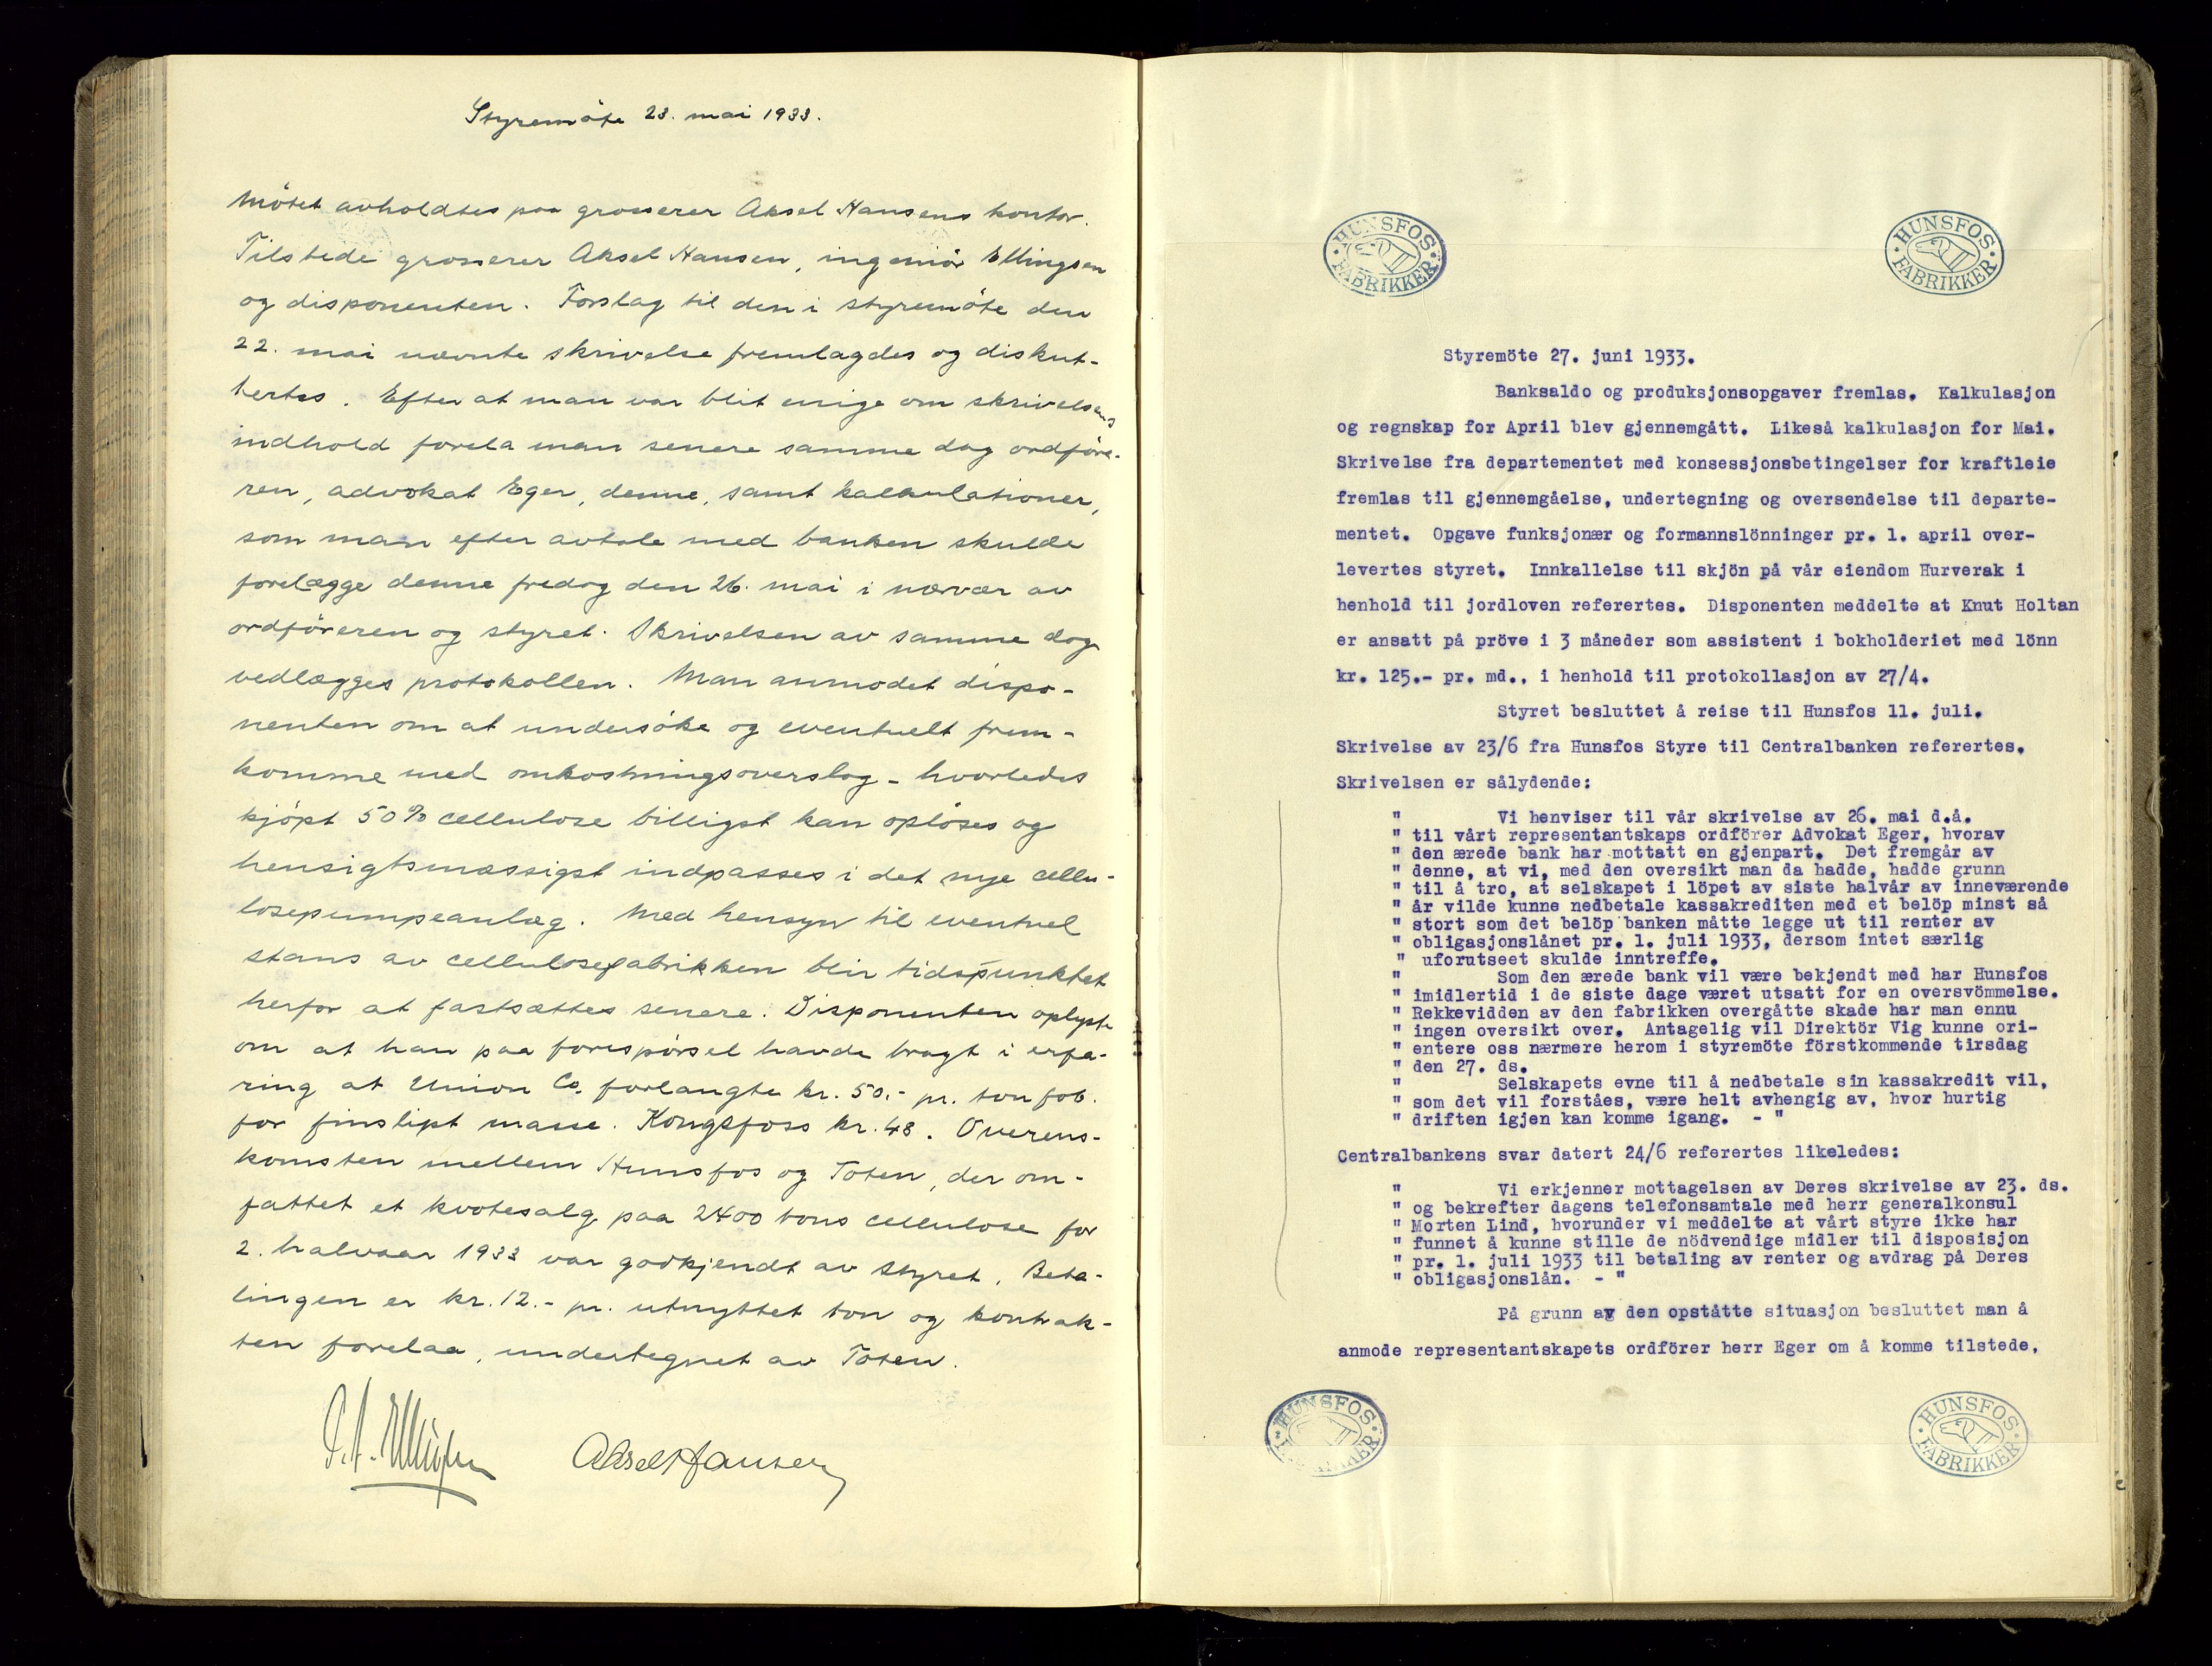 Styremöte 23. mai 1933.
Mötet avholdtes paa grosserer Aksel Hansens kontor.
Tilstede grosserer Aksel Hansen, ingeniör Ellingsen
og disponenten. Forslag til den i styremöte den
22. mai nævnte skrivelse fremlagdes og diskut-
tertes. Efter at man var blit enige om skrivelsens
indhold forela man senere samme dag ordföre-
ren, advokat Eger, denne, samt kalkulationer,
som man efter avtale med banken skulde
forelægge denne fredag den 26. mai i nærvær av
ordföreren og styret. Skrivelsen av samme dag
vedlægges protokollen. Man anmodet dispo-
nenten om at undersöke og eventuelt frem-
komme med omkostningsoverslag - hvorledes
kjöpt 50% cellulose billigst kan oplöses og
hensigtsmæssigst indpasses i det nye cellu-
losepumpeanlæg. Med hensyn til eventuel
stans av cellulosefabrikken blir tidspunktet
herfor at fastsættes senere. Disponenten oplyste
om at han paa forespörsel havde bragt i erfa-
ring at Union Co. forlangte kr. 50.- pr. ton fob.
for finslipt masse. Kongsfoss kr. 48. Overens-
komsten mellem Hunsfos og Toten, der om-
fattet et kvotesalg paa 2400 tons cellulose for
2. halvaar 1933 var godkjendt av styret. Beta-
lingen er kr. 12.- pr. utnyttet ton og kontrak-
ten forelaa, undertegnet av Toten.
Aksel Hansen
HUNSFOS FABRIKKER
HUNSFOS FABRIKKER
Styremöte 27. juni 1933.
Banksaldo og produksjonsopgaver fremlas. Kalkulasjon
og regnskap for April blev gjennemgått. Likeså kalkulasjon for Mai.
Skrivelse fra departementet med konsessjonsbetingelser for kraftleie
fremlas til gjennemgåelse, undertegning og oversendelse til departe-
mentet. Opgave funksjonær og formannslönninger pr. 1. april over-
levertes styret. Innkallelse til skjön på vår eiendom Hurverak i
henhold til jordloven referertes. Disponenten meddelte at Knut Holtan
er ansatt på pröve i 3 måneder som assistent i bokholderiet med lönn
kr. 125.- pr. md., i henhold til protokollasjon av 27/4.
Styret besluttet å reise til Hunsfos 11. juli.
Skrivelse av 23/6 fra Hunsfos Styre til Centralbanken referertes.
Skrivelsen er sålydende:
" Vi henviser til vår skrivelse av 26. mai d.å.
" til vårt representantskaps ordförer Advokat Eger, hvorav
" den ærede bank har mottatt en gjenpart. Det fremgår av
" denne, at vi, med den oversikt man da hadde, hadde grunn
" til å tro, at selskapet i löpet av siste halvår av inneværende
" år vilde kunne nedbetale kassakrediten med et belöp minst så
" stort som det belöp banken måtte legge ut til renter av
" obligasjonslånet pr. 1. juli 1933, dersom intet særlig
" uforutseet skulde inntreffe.
" Som den ærede bank vil være bekjendt med har Hunsfos
" imidlertid i de siste dage været utsatt for en oversvömmelse.
" Rekkevidden av den fabrikken overgåtte skade har man ennu
" ingen oversikt over. Antagelig vil Direktör Vig kunne ori-
" entere oss nærmere herom i styremöte förstkommende tirsdag
" den 27. ds.
" Selskapets evne til å nedbetale sin kassakredit vil,
" som det vil forståes, være helt avhengig av, hvor hurtig
" driften igjen kan komme igang. - "
Centralbankens svar datert 24/6 referertes likeledes:
" Vi erkjenner mottagelsen av Deres skrivelse av 23. ds.
" og bekrefter dagens telefonsamtale med herr generalkonsul
" Morten Lind, hvorunder vi meddelte at vårt styre ikke har
" funnet å kunne stille de nödvendige midler til disposisjon
" pr. 1. juli 1933 til betaling av renter og avdrag på Deres
" obligasjonslån. - "
På grunn av den opståtte situasjon besluttet man å
anmode representantskapets ordförer herr Eger om å komme tilstede,
HUNSFOS
HUNSFOS FABRIKKER